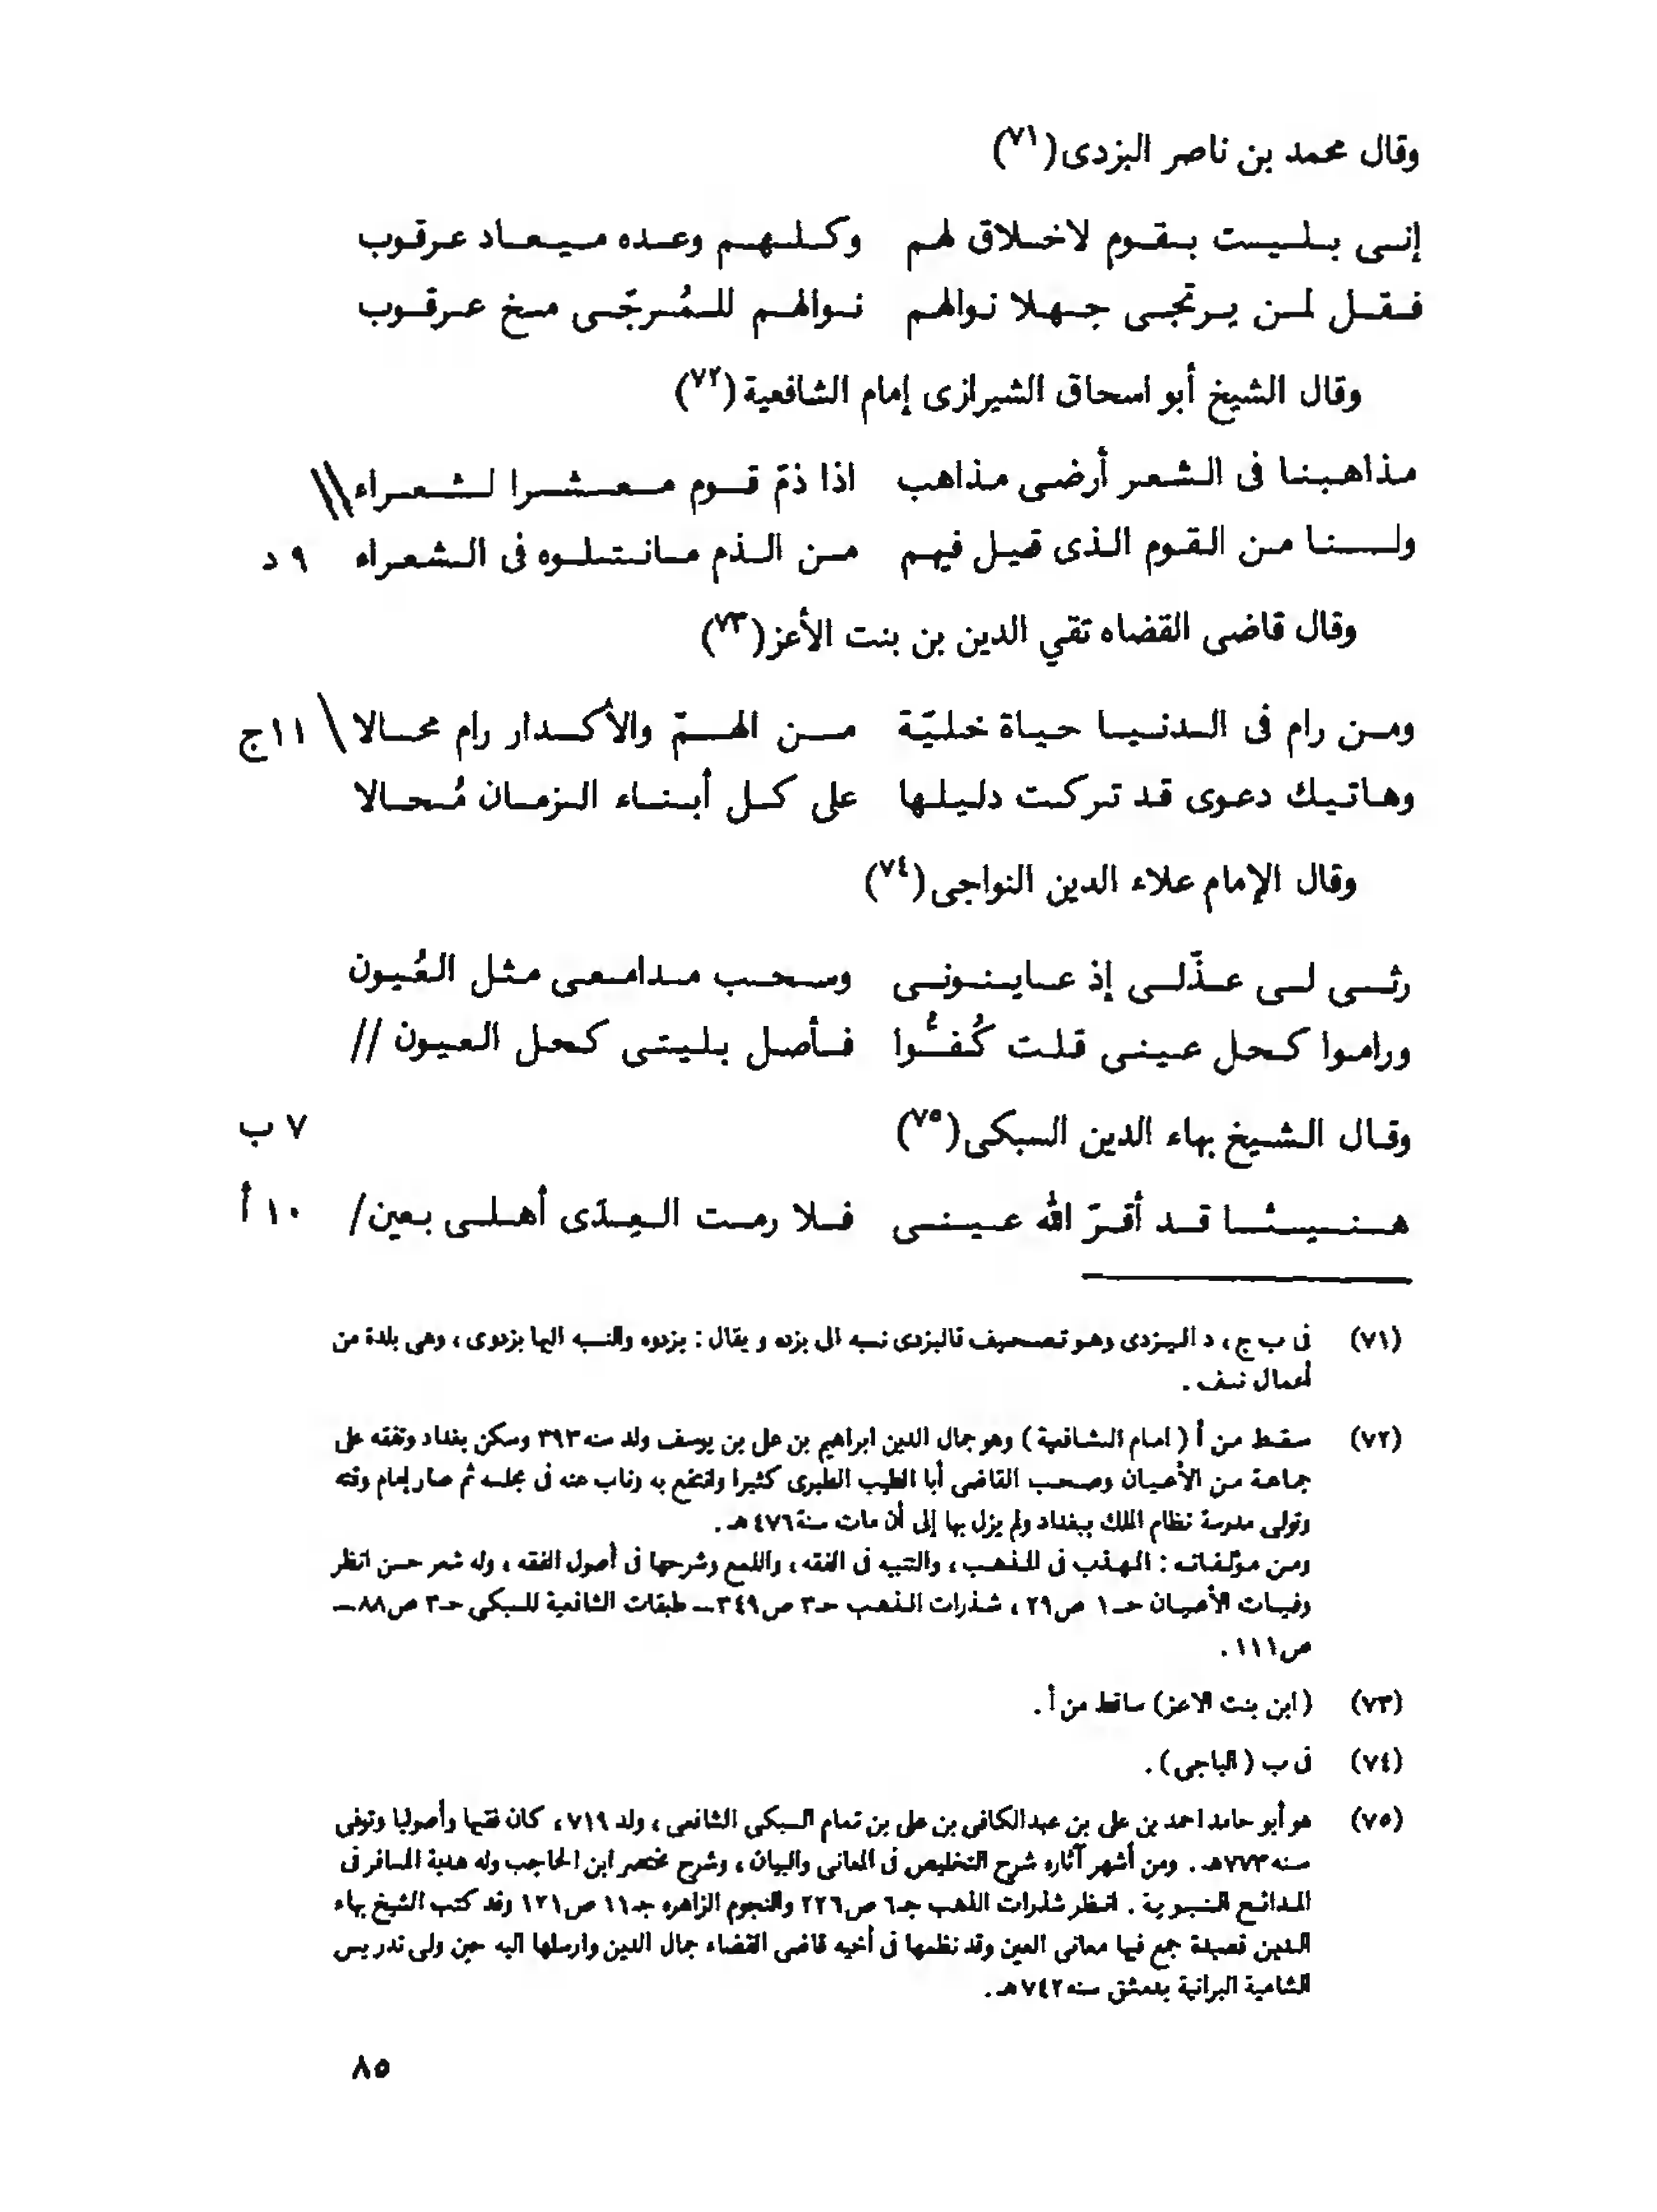 وقال محمد بن ناصر البزدى(٧١)
إنى بليت بقوم لاخلاق لهم وكلهم وعده ميعاد عرقوب
فقل لمن يرتجى جهلا نوالهم نوالهم للمُرجّى مخ عرقوب
وقال الشيخ أبو اسحاق الشيرازى إمام الشافعية(٧٢)
مذاهبنا فى الشعر أرضى مذاهب اذا ذمّ قوم معشرا لشعراء\\
ولسنا من القوم الذى قيل فيهم من الذم مانتلوه فى الشعراء ٩ د
وقال قاضى القضاه تقي الدين بن بنت الأعز(٧٣)
ومن رام فى الدنيا حياة خليّة من الهمّ والأكدار رام محالا \ ١١ج
وهاتيك دعوى قد تركت دليلها على كل أبناء الزمان مُحالا
وقال الإمام علاء الدين النواجى(٧٤)
رثى لى عذّلى إذ عاينونى وسحب مدامعى مثل العُيون
وراموا كحل عينى قلت كُفئُوا فأصل بليتى كحل العيون //
وقال الشيخ بهاء الدين السبكى(٧٥) ٧ ب
هنيئا قد أقرّ الله عينى فلا رمت العِدَى أهلى بعين/ ١٠ أ
(٧١) فى ب ج، د اليزدى وهو تصحيف فالبزدى نسبه الى بزده و يقال : بزدوه والنسبه اليها بزدوى ، وهى بلدة من
أعمال نسف .
(٧٢) سقط من أ (امام الشافعية) وهو جمال الدين ابراهيم بن على بن يوسف ولد سنه ٣٩٣ وسكن بغداد وتفقه على
جماعة من الأعيان وصحب القاضى أبا الطيب الطبرى كثيرا وانتفع به وناب عنه فى مجلسه ثم صار إمام وقته
وتولى مدرسة نظام الملك ببغداد ولم يزل بها إلى أن مات سنة ٤٧٦ هـ .
ومن مؤلفاته : المهذب فى المذهب ، والتنبيه فى الفقه ، واللمع وشرحها فى أصول الفقه ، وله شعر حسن انظر
وفيات الأعيان حـ١ ص٢٩ ، شذرات الذهب حـ٣ ص٣٤٩ــ طبقات الشافعية للسبكي حـ٣ ص٨٨ــ
ص١١١ .
(٧٣) (ابن بنت الاعز) ساقط من أ .
(٧٤) فى ب (الباجى) .
(٧٥) هو أبو حامد احمد بن على بن عبدالكافى بن على بن تمام السبكى الشافعى ، ولد ٧١٩ ، كان فقيها وأصوليا وتوفى
سنه ٧٧٣هـ . ومن أشهر آثاره شرح التخليص فى المعانى والبيان ، وشرح مختصر ابن الحاجب وله هدية المسافر فى
المدائح النبوية . انظر شذرات الذهب جـ٦ ص٢٢٦ والنجوم الزاهره جـ١١ ص١٢١ وقد كتب الشيخ بهاء
الدين قصيدة جمع فيها معانى العين وقد نظمها فى أخيه قاضى القضاء جمال الدين وارسلها اليه حين ولى تدريس
الشامية البرانية بدمشق سنه ٧٤٢ هـ.
٨٥